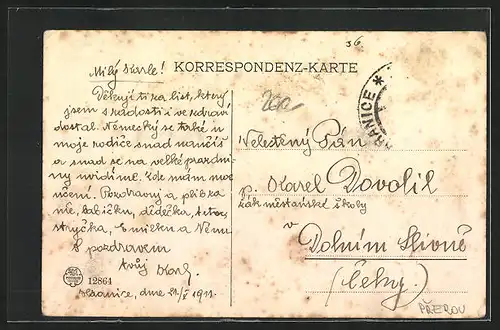 36
KORRESPONDENZ-KARTE
Milý Karle!
Děkuji ti za list, který
jsem s radostí i ve zdraví
dostal. Německy se také u
moje rodiče snad naučíš
a snad se na velké prázdni-
ny uvidíme. Kde mám moc
učení. Pozdravuj a
babičku, dědečka, tetu,
strýčka,
S pozdravem
tvůj Karl.
Hranice, dne 21/X 1911.
12864
RANICE *
Veletěný Pán
p. Karel Dovolil
žák měšťanské školy
v
Dolním
(Čechy)
PŘEROV